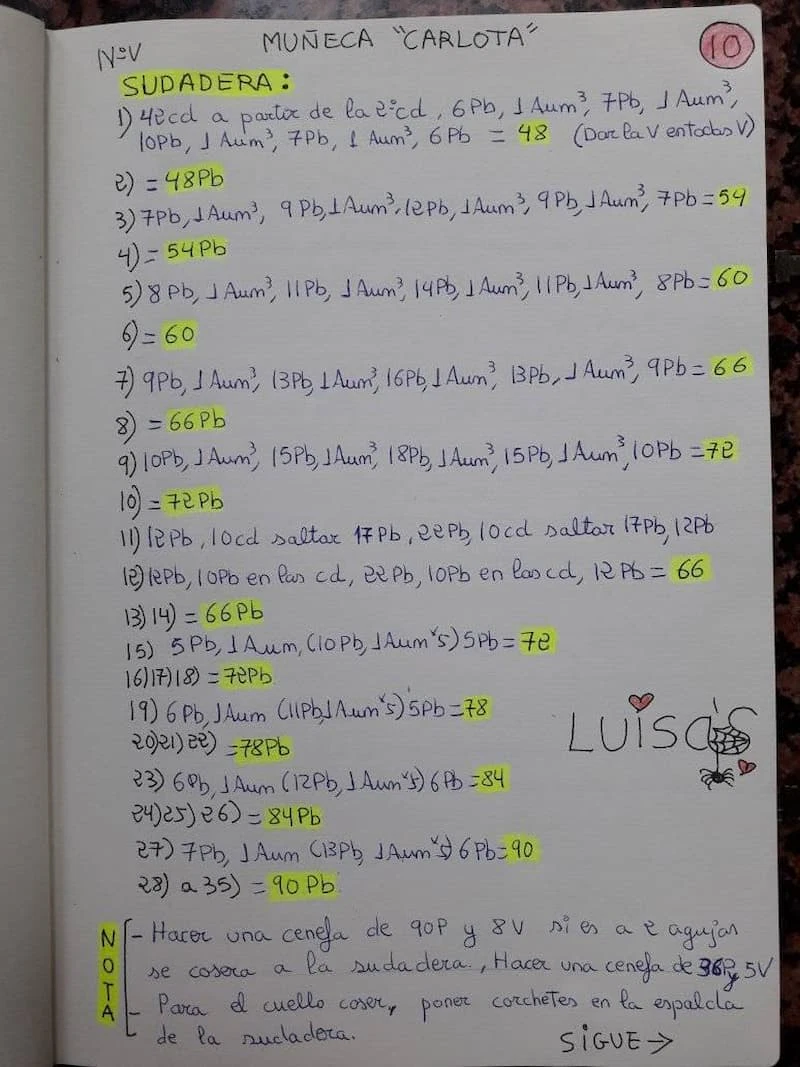 MUÑECA "CARLOTA"
10
NºV
SUDADERA:
1) 42cd a partir de la 2ºcd, 6Pb, 1Aum³, 7Pb, 1Aum³,
10Pb, 1Aum³, 7Pb, 1Aum³, 6Pb = 48 (Dar la V en todas V)
2) = 48Pb
3) 7Pb, 1Aum³, 9Pb, 1Aum³, 12Pb, 1Aum³, 9Pb, 1Aum³, 7Pb = 54
4) = 54Pb
5) 8Pb, 1Aum³, 11Pb, 1Aum³, 14Pb, 1Aum³, 11Pb, 1Aum³, 8Pb = 60
6) = 60
7) 9Pb, 1Aum³, 13Pb, 1Aum³, 16Pb, 1Aum³, 13Pb, 1Aum³, 9Pb = 66
8) = 66Pb
9) 10Pb, 1Aum³, 15Pb, 1Aum³, 18Pb, 1Aum³, 15Pb, 1Aum³, 10Pb = 72
10) = 72Pb
11) 12Pb, 10cd saltar 17Pb, 22Pb, 10cd saltar 17Pb, 12Pb
12) 12Pb, 10Pb en las cd, 22Pb, 10Pb en las cd, 12Pb = 66
13) 14) = 66Pb
15) 5Pb, 1Aum, (10Pb, 1Aum x 5) 5Pb = 72
16) 17) 18) = 72Pb
19) 6Pb, 1Aum (11Pb, 1Aum x 5) 5Pb = 78
20) 21) 22) = 78Pb
23) 6Pb, 1Aum (12Pb, 1Aum x 5) 6Pb = 84
24) 25) 26) = 84Pb
27) 7Pb, 1Aum (13Pb, 1Aum x 5) 6Pb = 90
28) a 35) = 90Pb
LUISA'S
NOTA
- Hacer una cenefa de 90P y 8V si es a 2 agujas
se cosera a la sudadera., Hacer una cenefa de 36P y 5V
- Para el cuello coser, poner corchetes en la espalda
de la sudadera.
SIGUE →